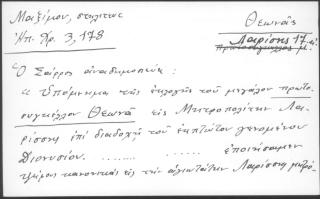 Μαξίμου, σταλιτας
Ἠπ. Χρ. 3, 178
Θεωνᾶς
Λαρίσης 17 αἰ.
πρωτοσύγκελλος μ.
Ὁ Σάρρος ἀναδημοσιεύει:
« Ὑπόμνημα τῆς ἐκλογῆς τοῦ μεγάλου πρωτο-
συγκέλλου Θεωνᾶ εἰς Μητροπολίτην Λα-
ρίσσης ἐπὶ διαδοχῇ τοῦ ἐκπτώτου γενομένου
Διονυσίου. ......... ....... ἐποιήσαμεν
ψήφους κανονικὰς εἰς τὴν ἁγιωτάτην Λαρίσσης μητρό-